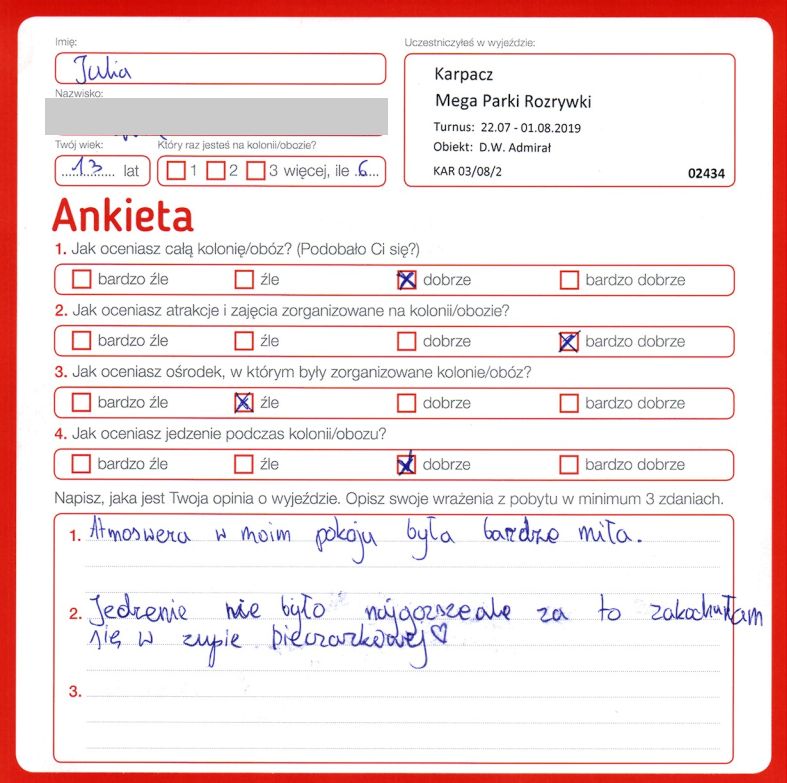 Imię:
Julia
Nazwisko:
Twój wiek:
13 lat
Który raz jesteś na kolonii/obozie?
1 2 3 więcej, ile 6
Uczestniczyłeś w wyjeździe:
Karpacz
Mega Parki Rozrywki
Turnus: 22.07 - 01.08.2019
Obiekt: D.W. Admirał
KAR 03/08/2 02434
Ankieta
1. Jak oceniasz całą kolonię/obóz? (Podobało Ci się?)
bardzo źle źle dobrze bardzo dobrze
2. Jak oceniasz atrakcje i zajęcia zorganizowane na kolonii/obozie?
bardzo źle źle dobrze bardzo dobrze
3. Jak oceniasz ośrodek, w którym były zorganizowane kolonie/obóz?
bardzo źle źle dobrze bardzo dobrze
4. Jak oceniasz jedzenie podczas kolonii/obozu?
bardzo źle źle dobrze bardzo dobrze
Napisz, jaka jest Twoja opinia o wyjeździe. Opisz swoje wrażenia z pobytu w minimum 3 zdaniach.
1. Atmoswera w moim pokoju była bardzo miła.
2. Jedzenie nie było najgorsze ale za to zakochałam
się w zupie pieczarkowej♡
3.